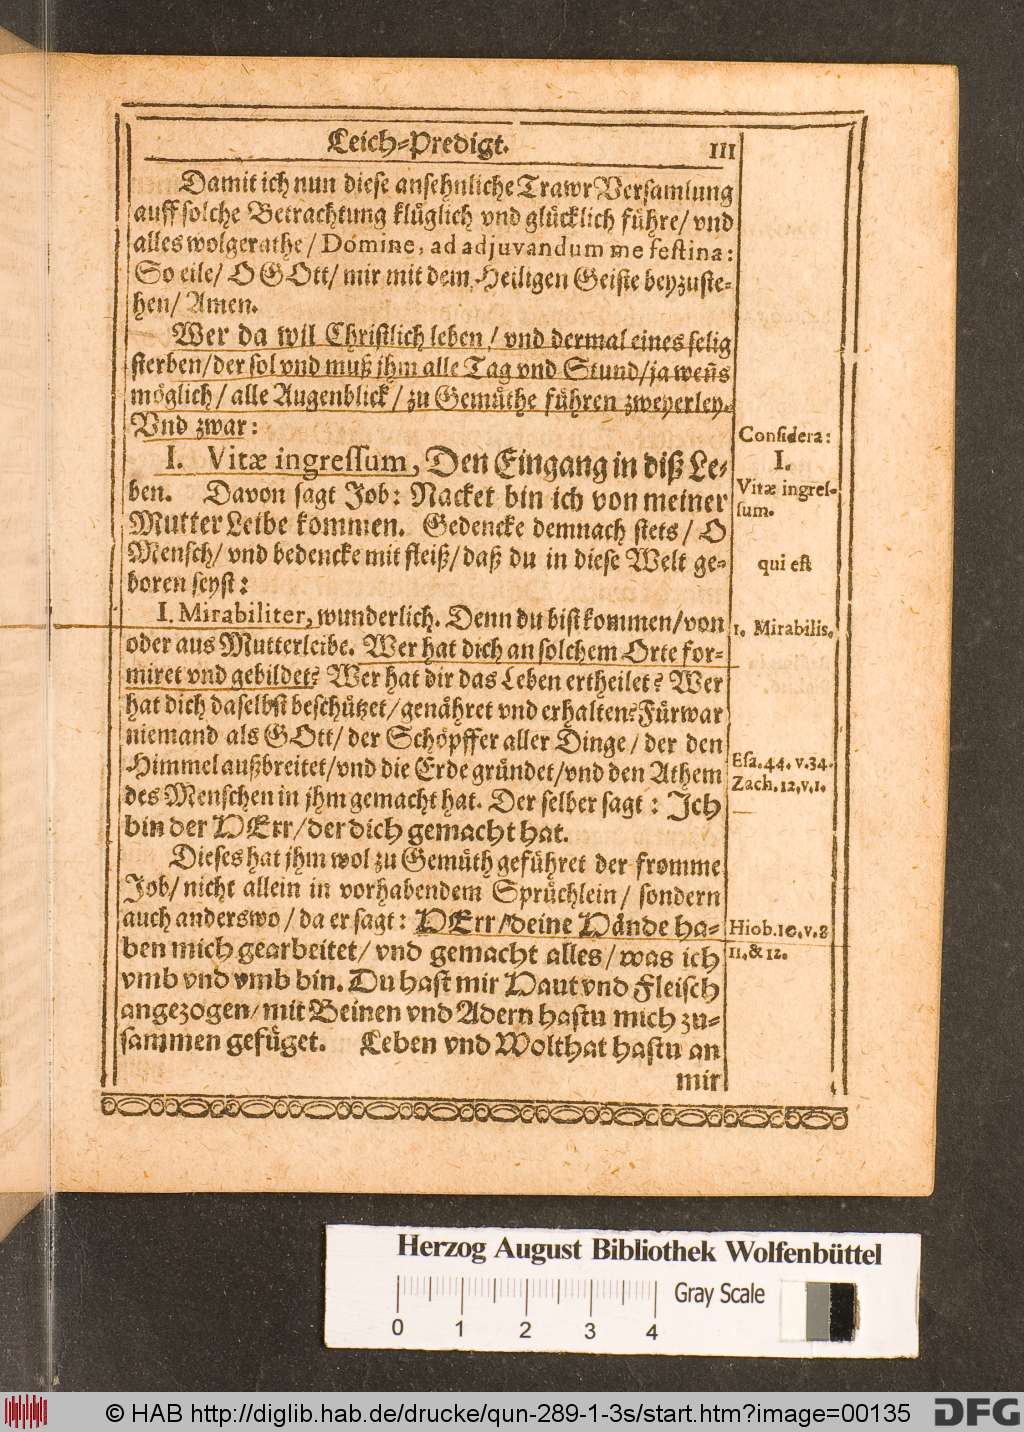 Leich-Predigt. III
Damit ich nun diese ansehnliche Trawr Versamlung
auff solche Betrachtung klüglich vnd glücklich führe/ vnd
alles wolgerathe/ Domine, ad adjuvandum me festina:
So eile/ O GOtt/ mir mit dem Heiligen Geiste beyzuste-
hen/ Amen.
Wer da wil Christlich leben/ vnd dermal eines selig
sterben/ der sol vnd muß jhm alle Tag vnd Stund/ ja weñs
möglich/ alle Augenblick/ zu Gemüthe führen zweyerley.
Vnd zwar:
I. Vitæ ingressum, Den Eingang in diß Le-
ben. Davon sagt Job: Nacket bin ich von meiner
Mutter Leibe kommen. Gedencke demnach stets/ O
Mensch/ vnd bedencke mit fleiß/ daß du in diese Welt ge-
boren seyst:
I. Mirabiliter, wunderlich. Denn du bist kommen/ von
oder aus Mutterleibe. Wer hat dich an solchem Orte for-
miret vnd gebildet? Wer hat dir das Leben ertheilet? Wer
hat dich daselbst beschützet/ genähret vnd erhalten? Fürwar
niemand als GOtt/ der Schöpffer aller Dinge/ der den
Himmel außbreitet/ vnd die Erde gründet/ vnd den Athem
des Menschen in jhm gemacht hat. Der selber sagt: Ich
bin der HErr/ der dich gemacht hat.
Dieses hat jhm wol zu Gemüth geführet der fromme
Job/ nicht allein in vorhabendem Sprüchlein/ sondern
auch anderswo/ da er sagt: HErr/ deine Hände ha-
ben mich gearbeitet/ vnd gemacht alles/ was ich
vmb vnd vmb bin. Du hast mir Haut vnd Fleisch
angezogen/ mit Beinen vnd Adern hastu mich zu-
sammen gefüget. Leben vnd Wolthat hastu an
mir
Considera:
I.
Vitæ ingres-
sum.
qui est
1. Mirabilis.
Esa. 44. v. 34.
Zach. 12. v. 1.
Hiob. 10. v. 8
11. & 12.
Herzog August Bibliothek Wolfenbüttel
Gray Scale
0 1 2 3 4
© HAB http://diglib.hab.de/drucke/qun-289-1-3s/start.htm?image=00135 DFG